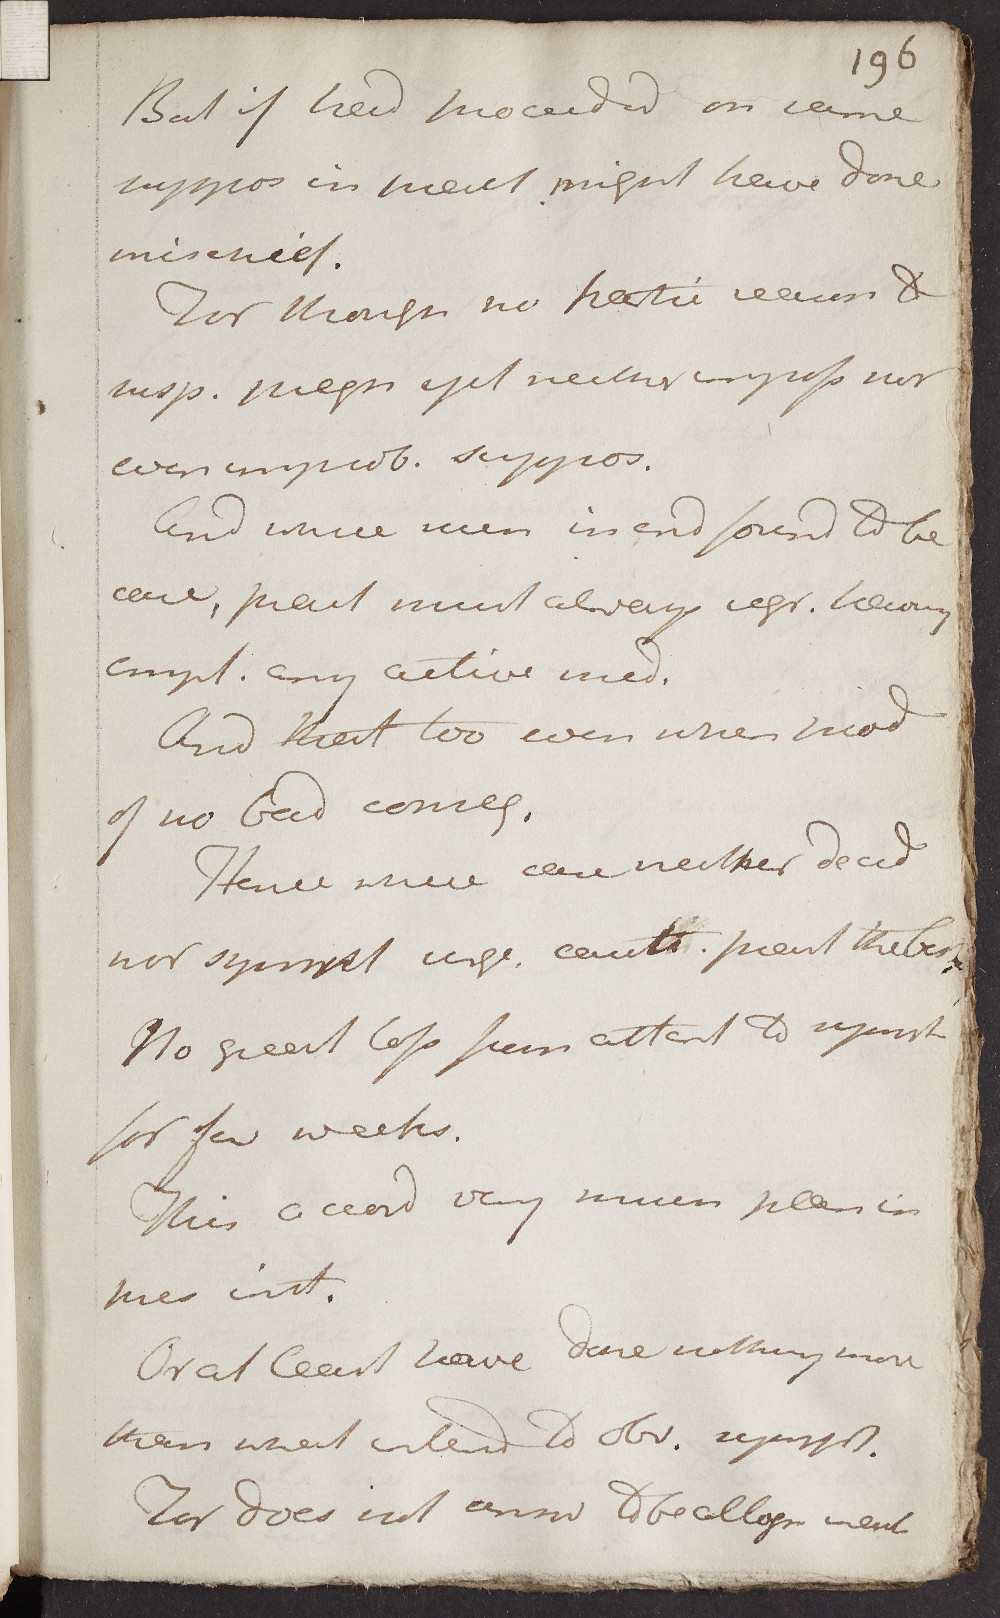 196
But if had proceeded on same
suppos in pract might have done
mischief.
For though no partic reason to
susp. pregn yet neither imposs nor
even improb. suppos.
And where even in end found to be
case, pract must always regr. having
empl. any active med.
And that too even when prod
of no bad conseq.
Hence where case neither decid
nor sympt urge. caut. pract the best.
No great loss from attent to sympt
for few weeks.
This accord very much plan in
pres inst.
Or at least have done nothing more
than what intend to obv. sympt.
For does not to be altogr